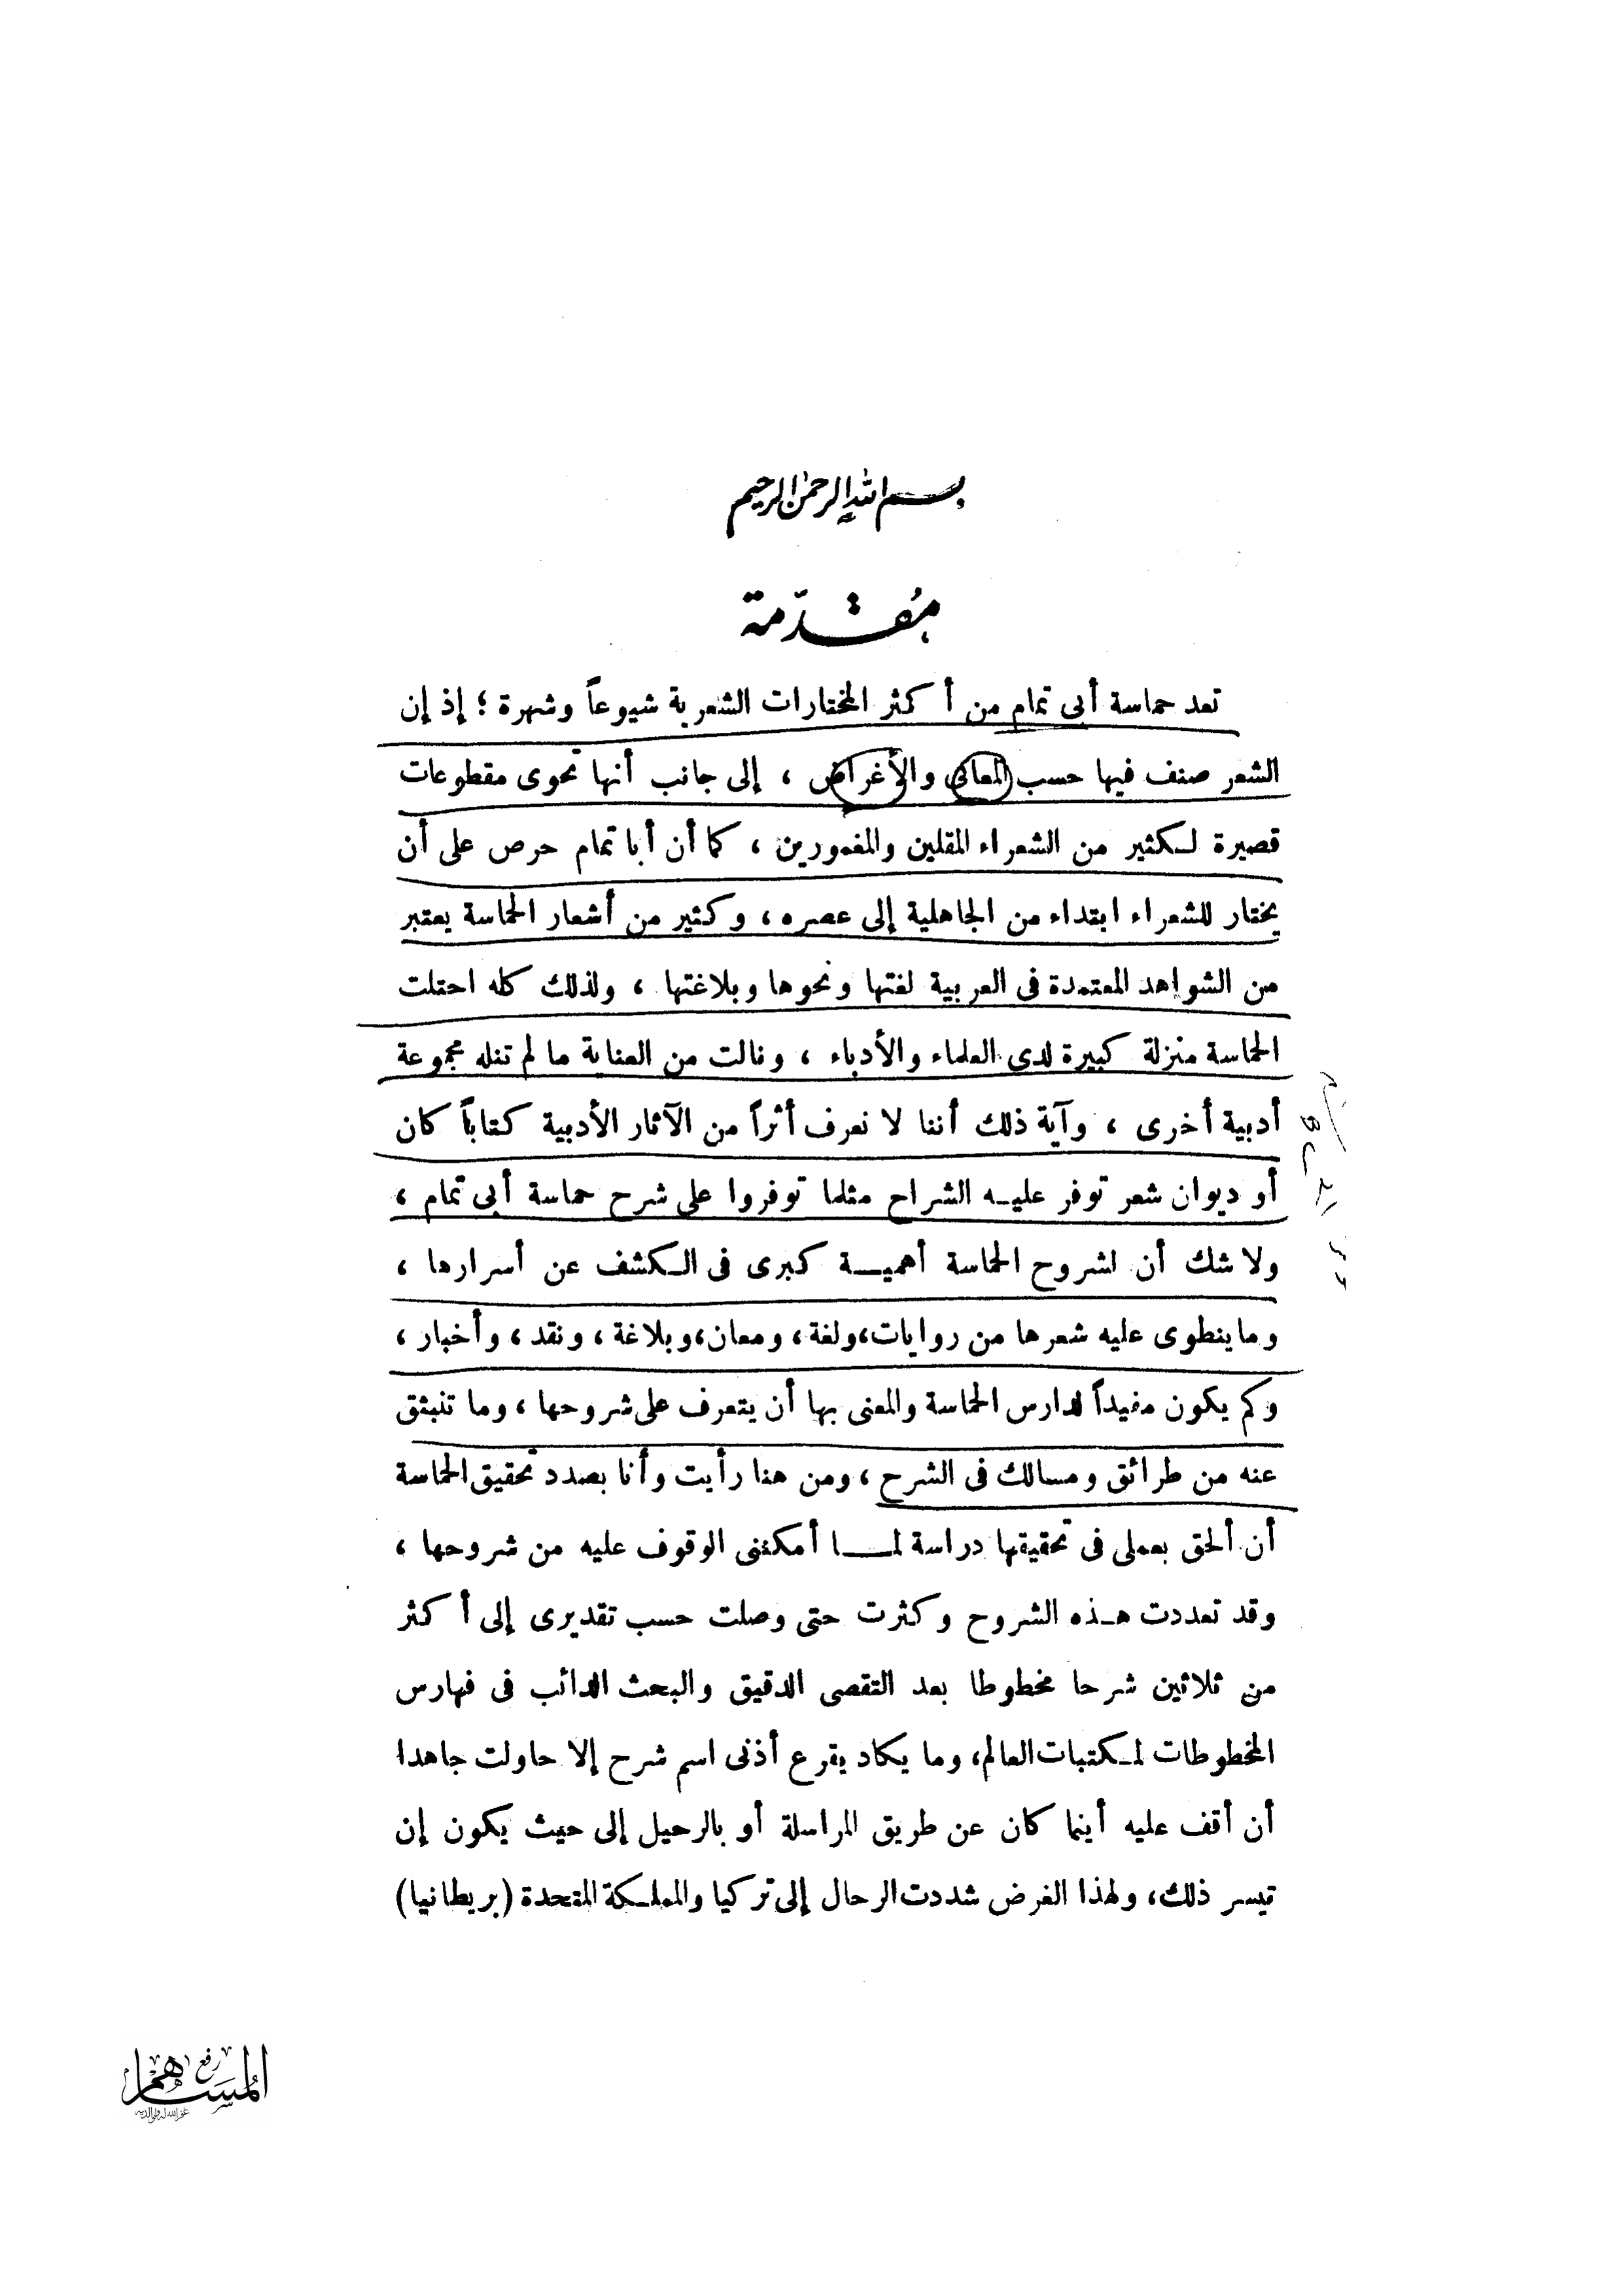 بسم الله الرحمن الرحيم
مُقدّمة
تعد حماسة أبى تمام من أكثر المختارات الشعرية شيوعاً وشهرة ؛ إذ إن
الشعر صنف فيها حسب المعانى والأغراض ، إلى جانب أنها تحوى مقطوعات
قصيرة لكثير من الشعراء المقلين والمغمورين ، كما أن أبا تمام حرص على أن
يختار للشعراء ابتداء من الجاهلية إلى عصره ، وكثير من أشعار الحماسة يعتبر
من الشواهد المعتمدة فى العربية لغتها ونحوها وبلاغتها ، ولذلك كله احتلت
الحماسة منزلة كبيرة لدى العلماء والأدباء ، ونالت من العناية ما لم تنله مجموعة
أدبية أخرى ، وآية ذلك أننا لا نعرف أثراً من الآثار الأدبية كتاباً كان
أو ديوان شعر توفر عليه الشراح مثلما توفروا على شرح حماسة أبى تمام ،
ولا شك أن لشروح الحماسة أهمية كبرى فى الكشف عن أسرارها ،
وما ينطوى عليه شعرها من روايات ، ولغة ، ومعان ، وبلاغة ، ونقد ، وأخبار ،
وكم يكون مفيداً لدارس الحماسة والمعنى بها أن يتعرف على شروحها ، وما تنبثق
عنه من طرائق ومسالك فى الشرح ، ومن هنا رأيت وأنا بصدد تحقيق الحماسة
أن ألحق بعملى فى تحقيقها دراسة لما أمكننى الوقوف عليه من شروحها ،
وقد تعددت هذه الشروح وكثرت حتى وصلت حسب تقديرى إلى أكثر
من ثلاثين شرحا مخطوطا بعد التقصى الدقيق والبحث الدائب فى فهارس
المخطوطات لمكتبات العالم ، وما يكاد يقرع أذنى اسم شرح إلا حاولت جاهدا
أن أقف عليه أينما كان عن طريق المراسلة أو بالرحيل إلى حيث يكون إن
تيسر ذلك ، ولهذا الغرض شددت الرحال إلى تركيا والمملكة المتحدة (بريطانيا)
رفع
المساهم
غفر الله له ولوالديه